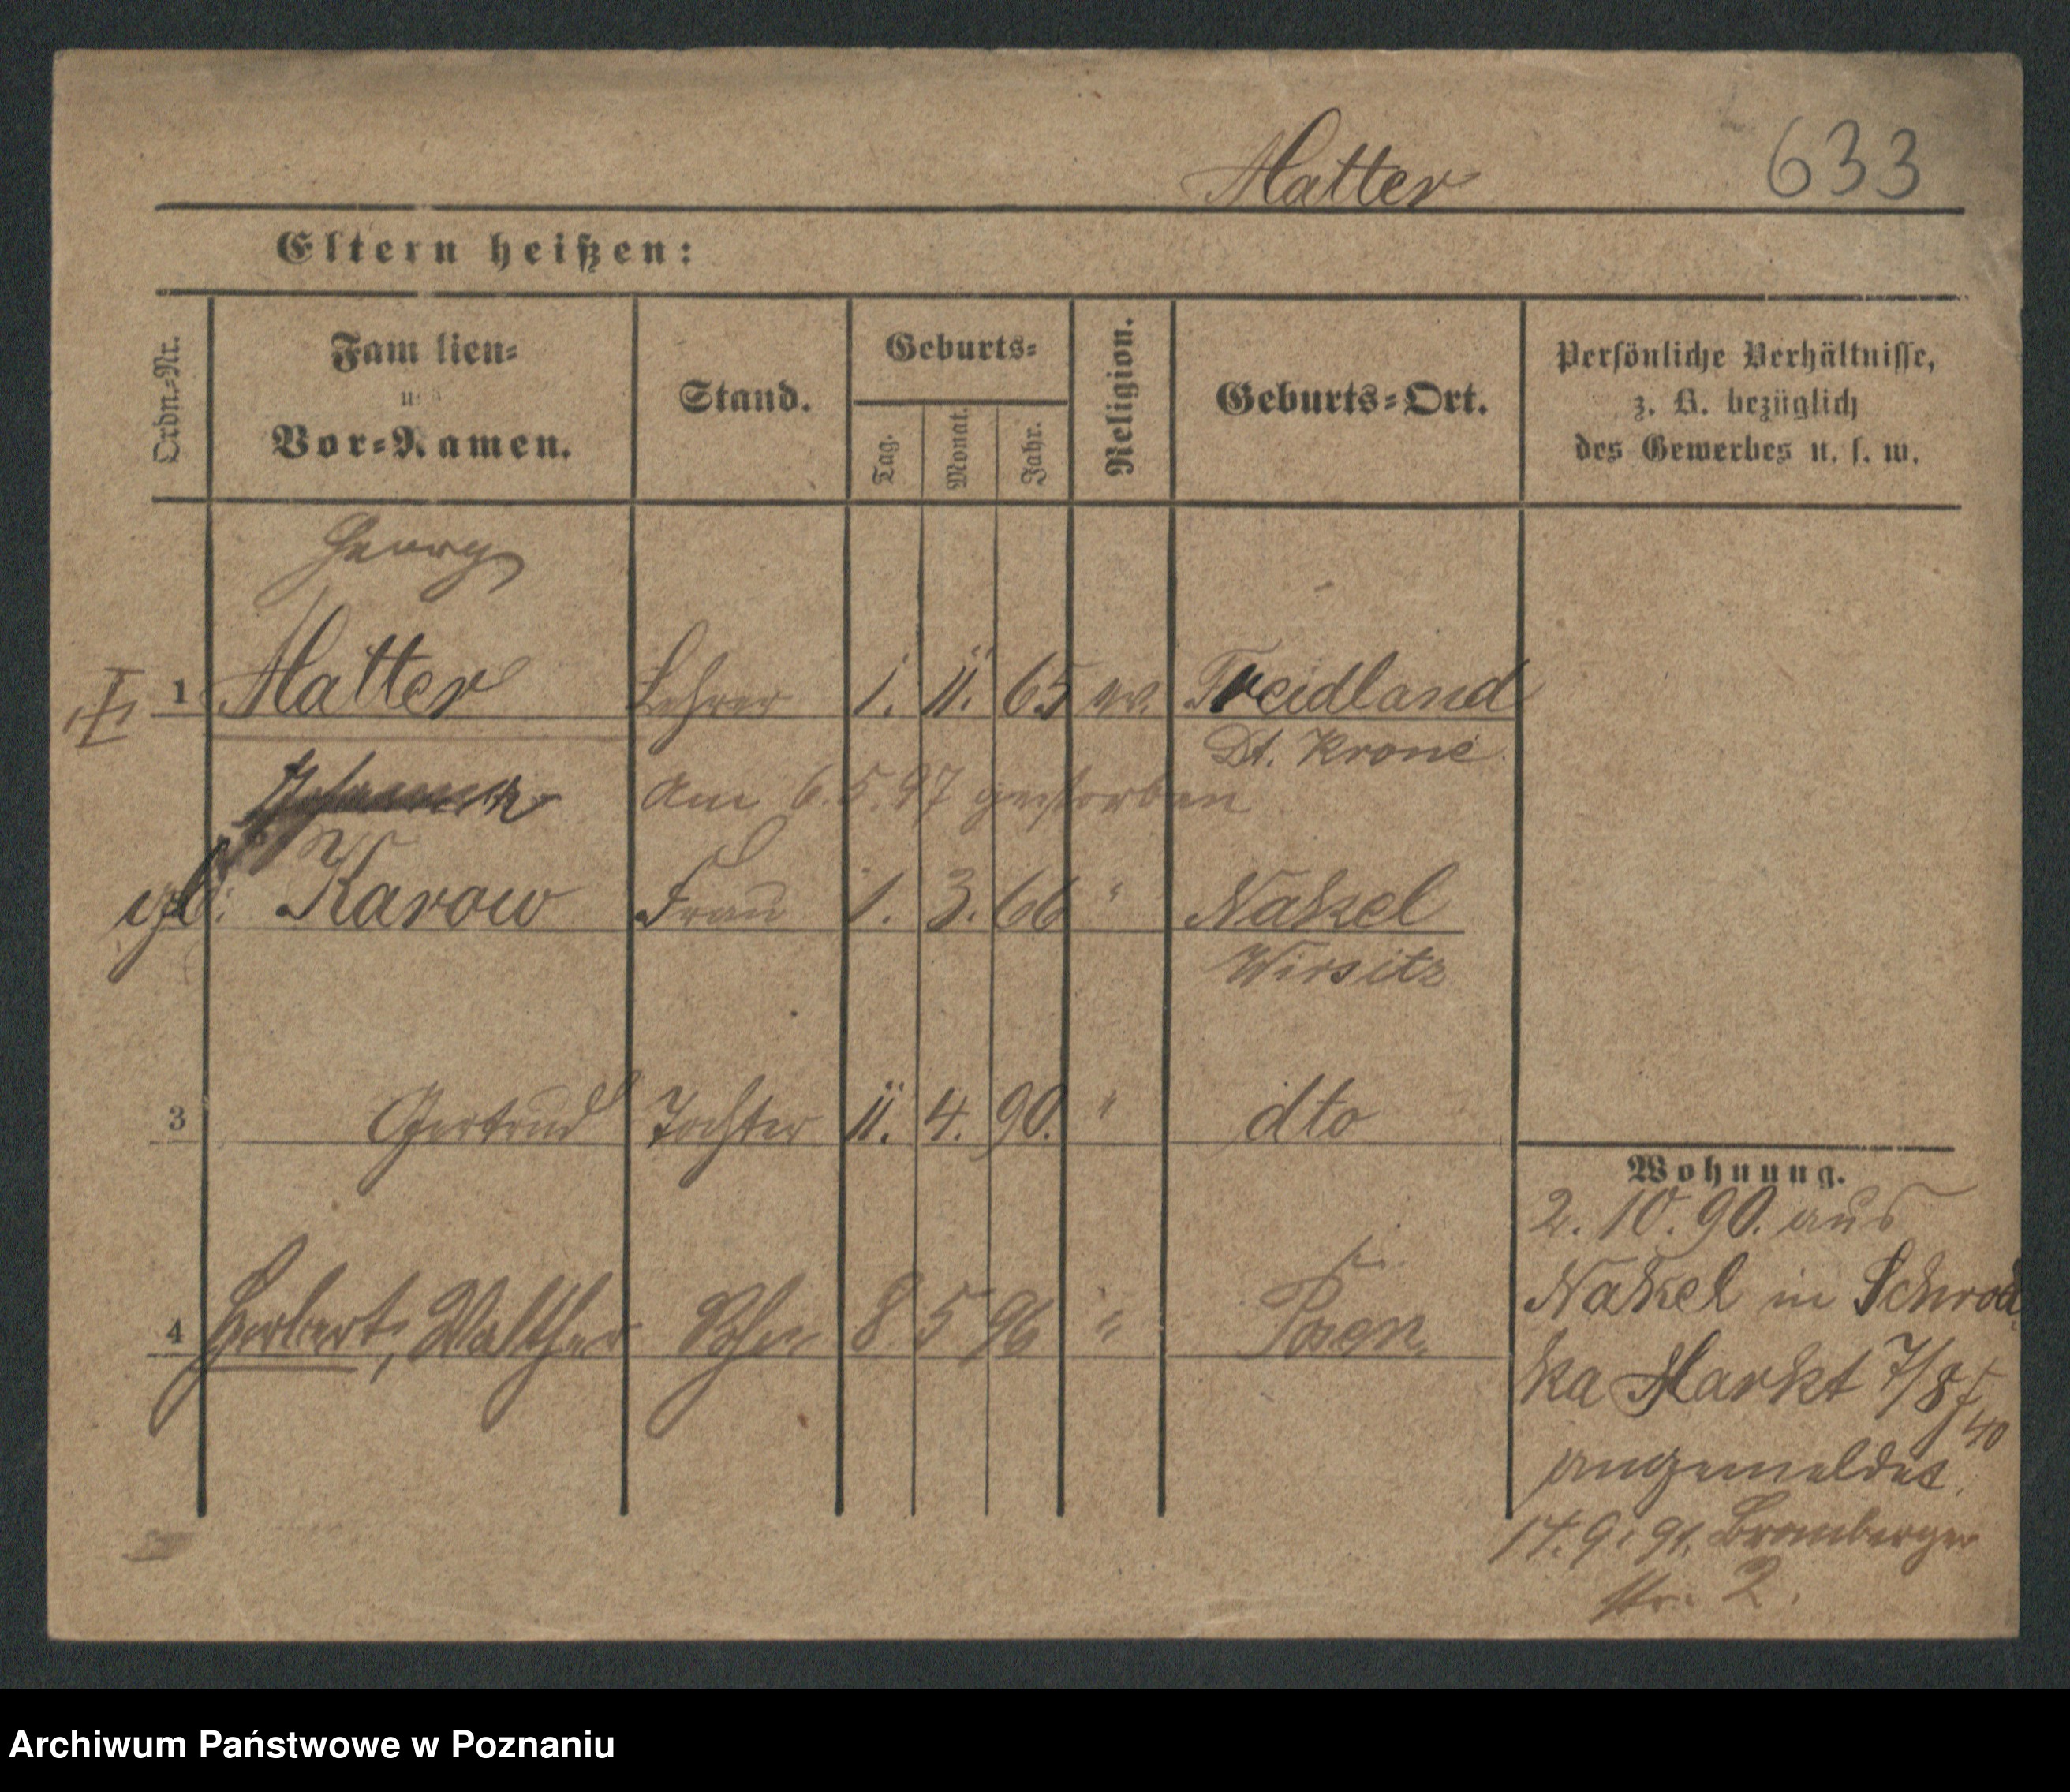 Matter 633
Eltern heißen:
Ordn.-Nr. Familien- und Vor-Namen. Stand. Geburts- Tag. Monat. Jahr. Religion. Geburts-Ort. Persönliche Verhältnisse, z. B. bezüglich des Gewerbes u. s. w.
Georg
1 Matter Lehrer 1. 11. 65 ev. Freidland
Dt. Krone
am 6.5.97 gestorben
Karow Frau 1. 3. 66 " Nakel
Wirsitz
3 Gertrud Tochter 11. 4. 90. " dto
Wohnung.
2. 10. 90. aus
Nakel in Schrod
ka Markt 7/8
40
angemeldet
4 Herbert, Walther Sohn 8 5 96 " Posen
17. 9. 91. Bromberger
str. 2.
Archiwum Państwowe w Poznaniu